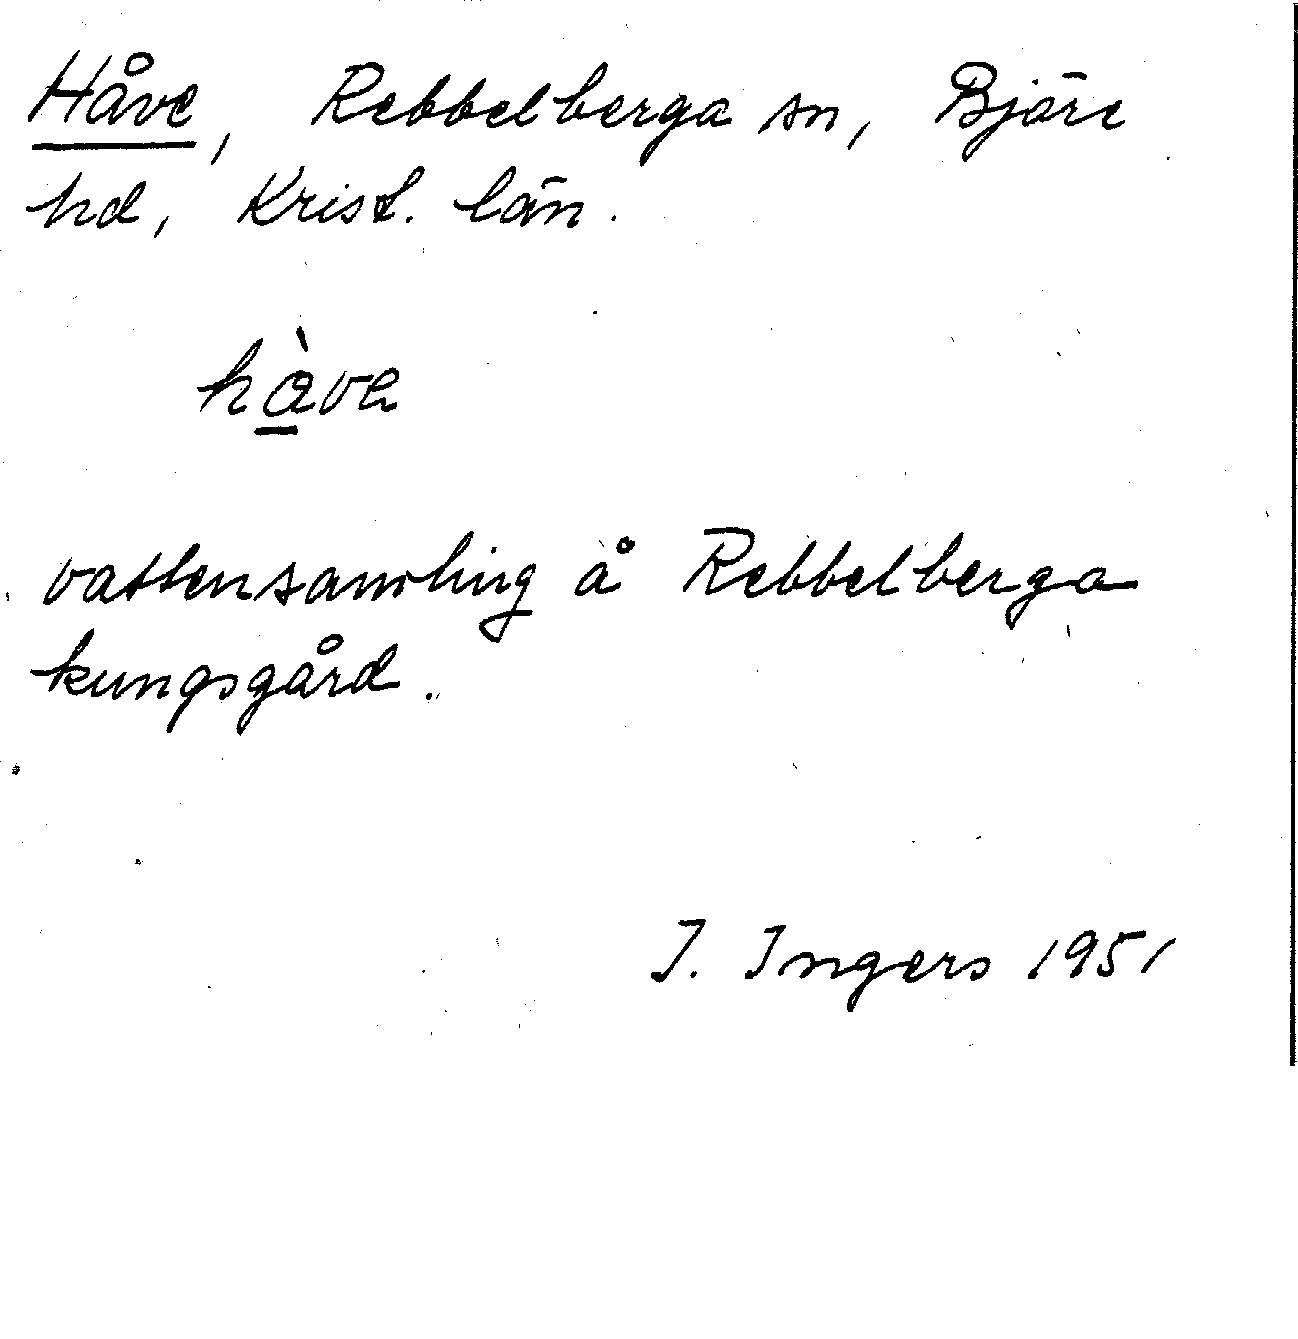 Håve, Rebbelberga sn, Bjäre
hd, Krist. län.
hàve
vattensamling å Rebbelberga
kungsgård.
I. Ingers 1951